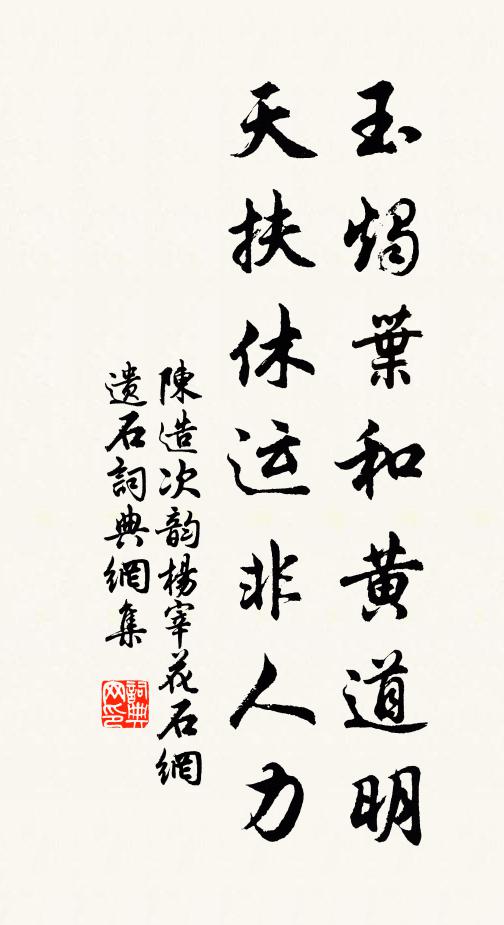 玉燭葉和黄道明
天扶休运非人力
陳造次韵楊宰花石綱
遺石詞典網集
詞典网印